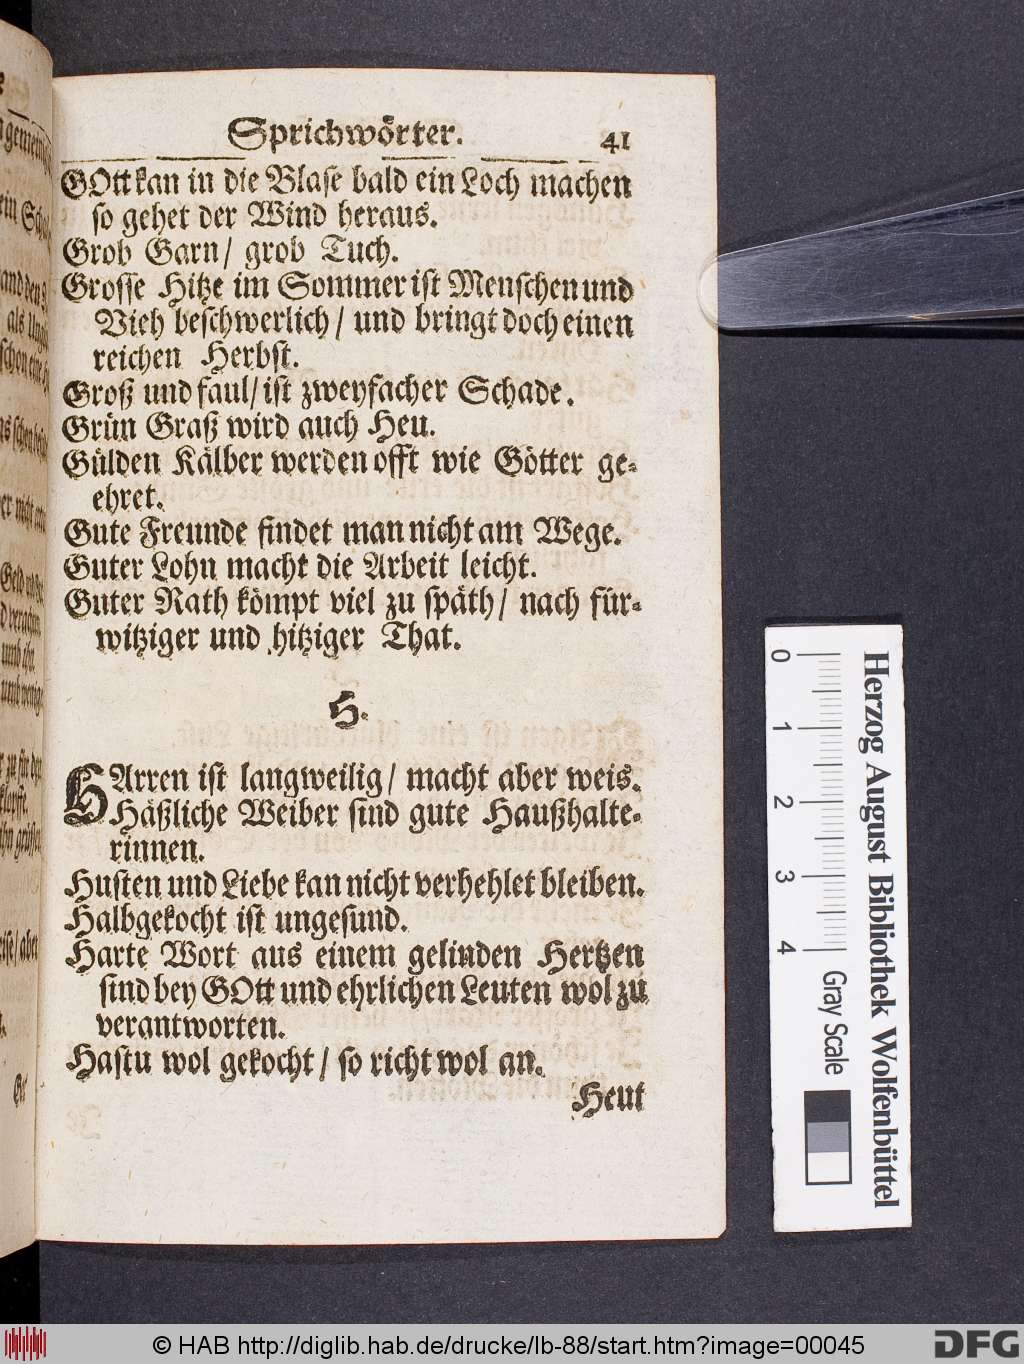 Sprichwörter. 41
GOtt kan in die Blase bald ein Loch machen
so gehet der Wind heraus.
Grob Garn/ grob Tuch.
Grosse Hitze im Sommer ist Menschen und
Vieh beschwerlich/ und bringt doch einen
reichen Herbst.
Groß und faul/ ist zweyfacher Schade.
Grün Graß wird auch Heu.
Gülden Kälber werden offt wie Götter ge-
ehret.
Gute Freunde findet man nicht am Wege.
Guter Lohn macht die Arbeit leicht.
Guter Rath kömpt viel zu späth/ nach für-
witziger und hitziger That.
H.
HArren ist langweilig/ macht aber weis.
Häßliche Weiber sind gute Haußhalte-
rinnen.
Husten und Liebe kan nicht verhehlet bleiben.
Halbgekocht ist ungesund.
Harte Wort aus einem gelinden Hertzen
sind bey GOtt und ehrlichen Leuten wol zu
verantworten.
Hastu wol gekocht/ so richt wol an.
Heut
0 1 2 3 4 Gray Scale
Herzog August Bibliothek Wolfenbüttel
© HAB http://diglib.hab.de/drucke/lb-88/start.htm?image=00045
DFG